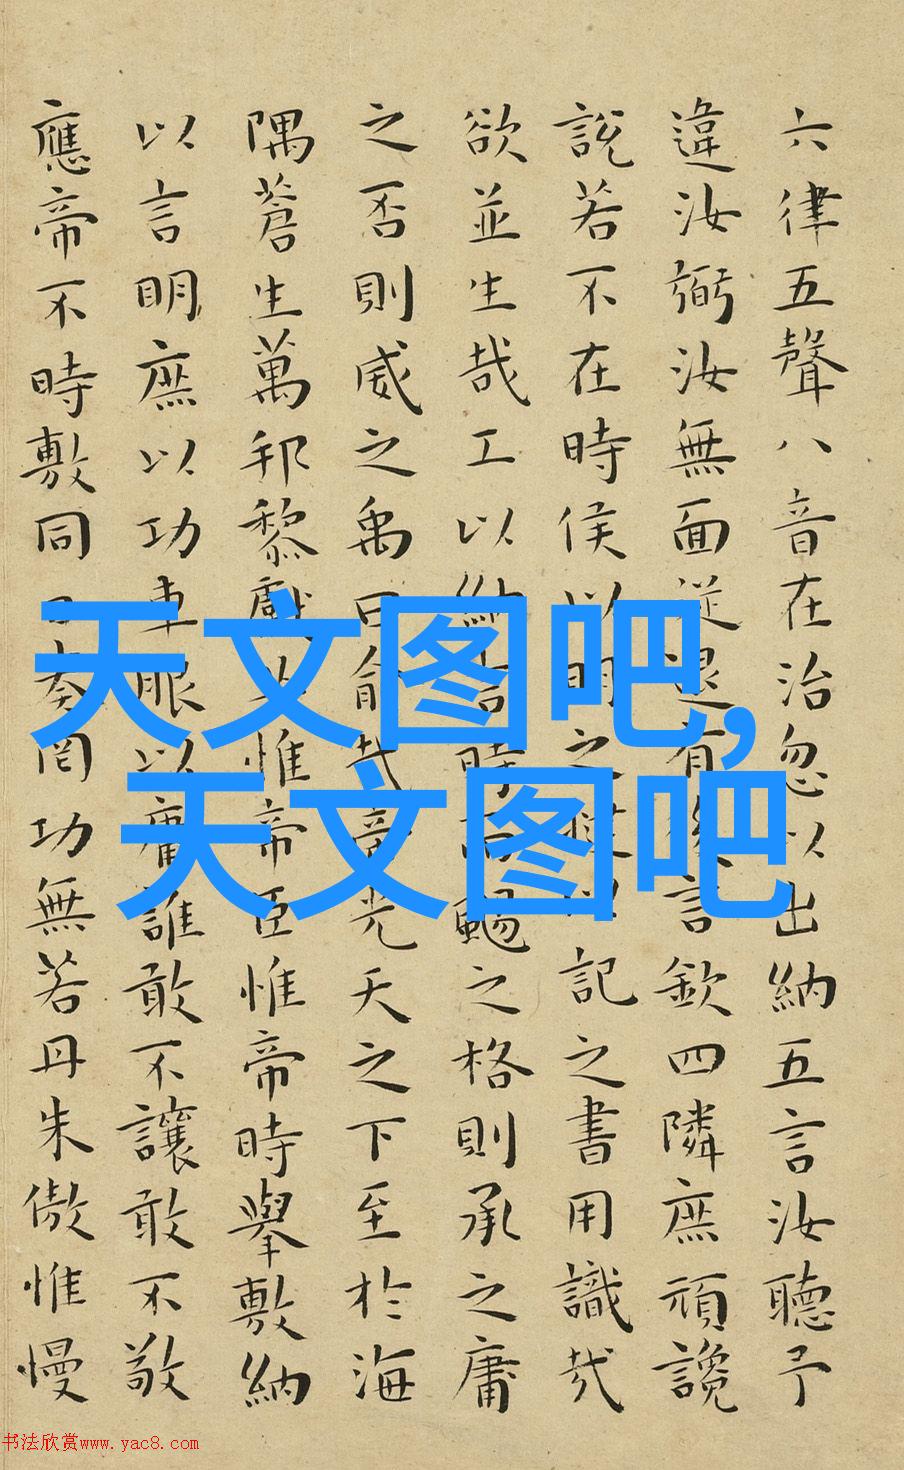 六律五聲八音在治忽以出納五言汝聽予
違汝弼汝無面從退有後言欽四隣庶頑讒
說若不在時侯以明之撻以記之書用識哉
欲並生哉工以納言時而颺之格則承之庸
之否則威之禹曰俞哉帝光天之下至於海
隅蒼生萬邦黎獻共惟帝臣惟帝時舉敷納
以言明庶以功車服以庸誰敢不讓敢不敬
應帝不時敷同日奏罔功無若丹朱傲惟慢
天文图吧,
天文图吧
书法欣赏www.yac8.com